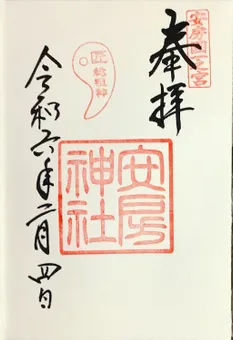 安房國一之宮
奉拝
匠総祖神
安房神社
令和六年二月四日